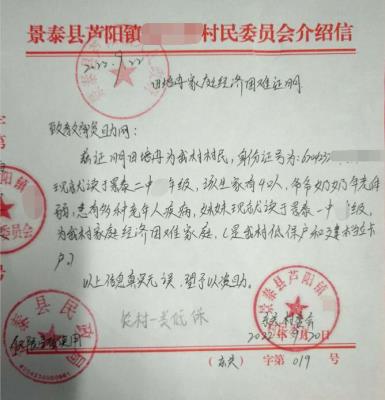 景泰县芦阳镇 村民委员会介绍信
2022.9.22
家庭经济困难证明
兹证明田 为我村村民，身份证号为：
现就读于景泰二中 年级，该生家有4口人，爷爷奶奶年老体
弱，患有多种老年人疾病，妹妹现就读于景泰一中 年级，
为我村家庭经济困难家庭，(是我村低保户和建档立卡
户。)
以上信息真实无误，望予以资助。
农村一类低保
景泰县芦阳镇
村委会
2022年9月20日
字第 019 号
景泰县民政局
仅限 使用